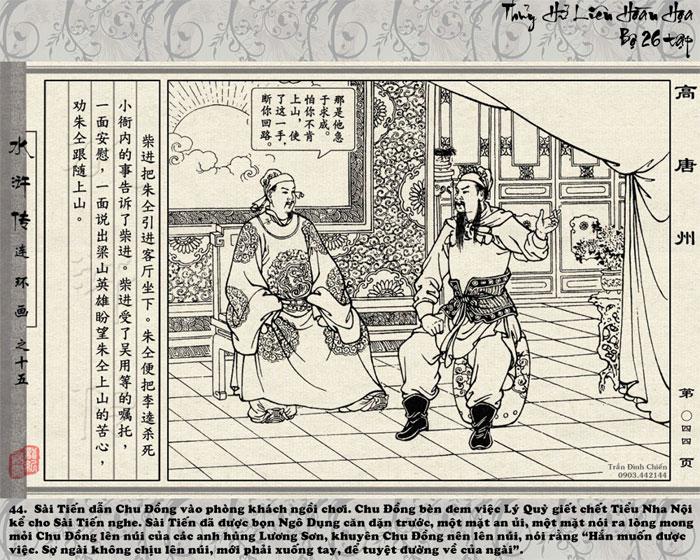 Thủy Hử Liên Hoàn Họa
Bộ 26 tập
高唐州
第〇四四页
水浒传连环画之十五
那是他急
于求成。
怕你不肯
上山，使
了这一手，
断你回路。
柴进把朱仝引进客厅坐下。朱仝便把李逵杀死
小衙内的事告诉了柴进。柴进受了吴用等的嘱托，
一面安慰，一面说出梁山英雄盼望朱仝上山的苦心，
劝朱仝跟随上山。
Trần Đình Chiến
0903.442144
44. Sài Tiến dẫn Chu Đồng vào phòng khách ngồi chơi. Chu Đồng bèn đem việc Lý Quỳ giết chết Tiểu Nha Nội
kể cho Sài Tiến nghe. Sài Tiến đã được bọn Ngô Dụng căn dặn trước, một mặt an ủi, một mặt nói ra lòng mong
mỏi Chu Đồng lên núi của các anh hùng Lương Sơn, khuyên Chu Đồng nên lên núi, nói rằng “Hắn muốn được
việc. Sợ ngài không chịu lên núi, mới phải xuống tay, để tuyệt đường về của ngài”.